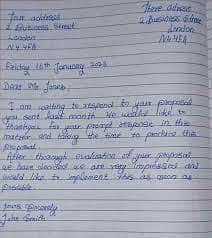 Your address
2 Business Street
London
N4 4FA
Their adress
2 Business Street
London
N4 4FA
Friday 16th January 2023
Dear Mr Jones,
I am writing to respond to your proposal
you sent last month. We would like to
thankyou for your prompt response in this
matter and taking the time to produce this
proposal
After thorough evaluation of your proposal
we have decided we are very impressed and
would like to implement this as soon as
possible.
Yours Sincerely
John Smith